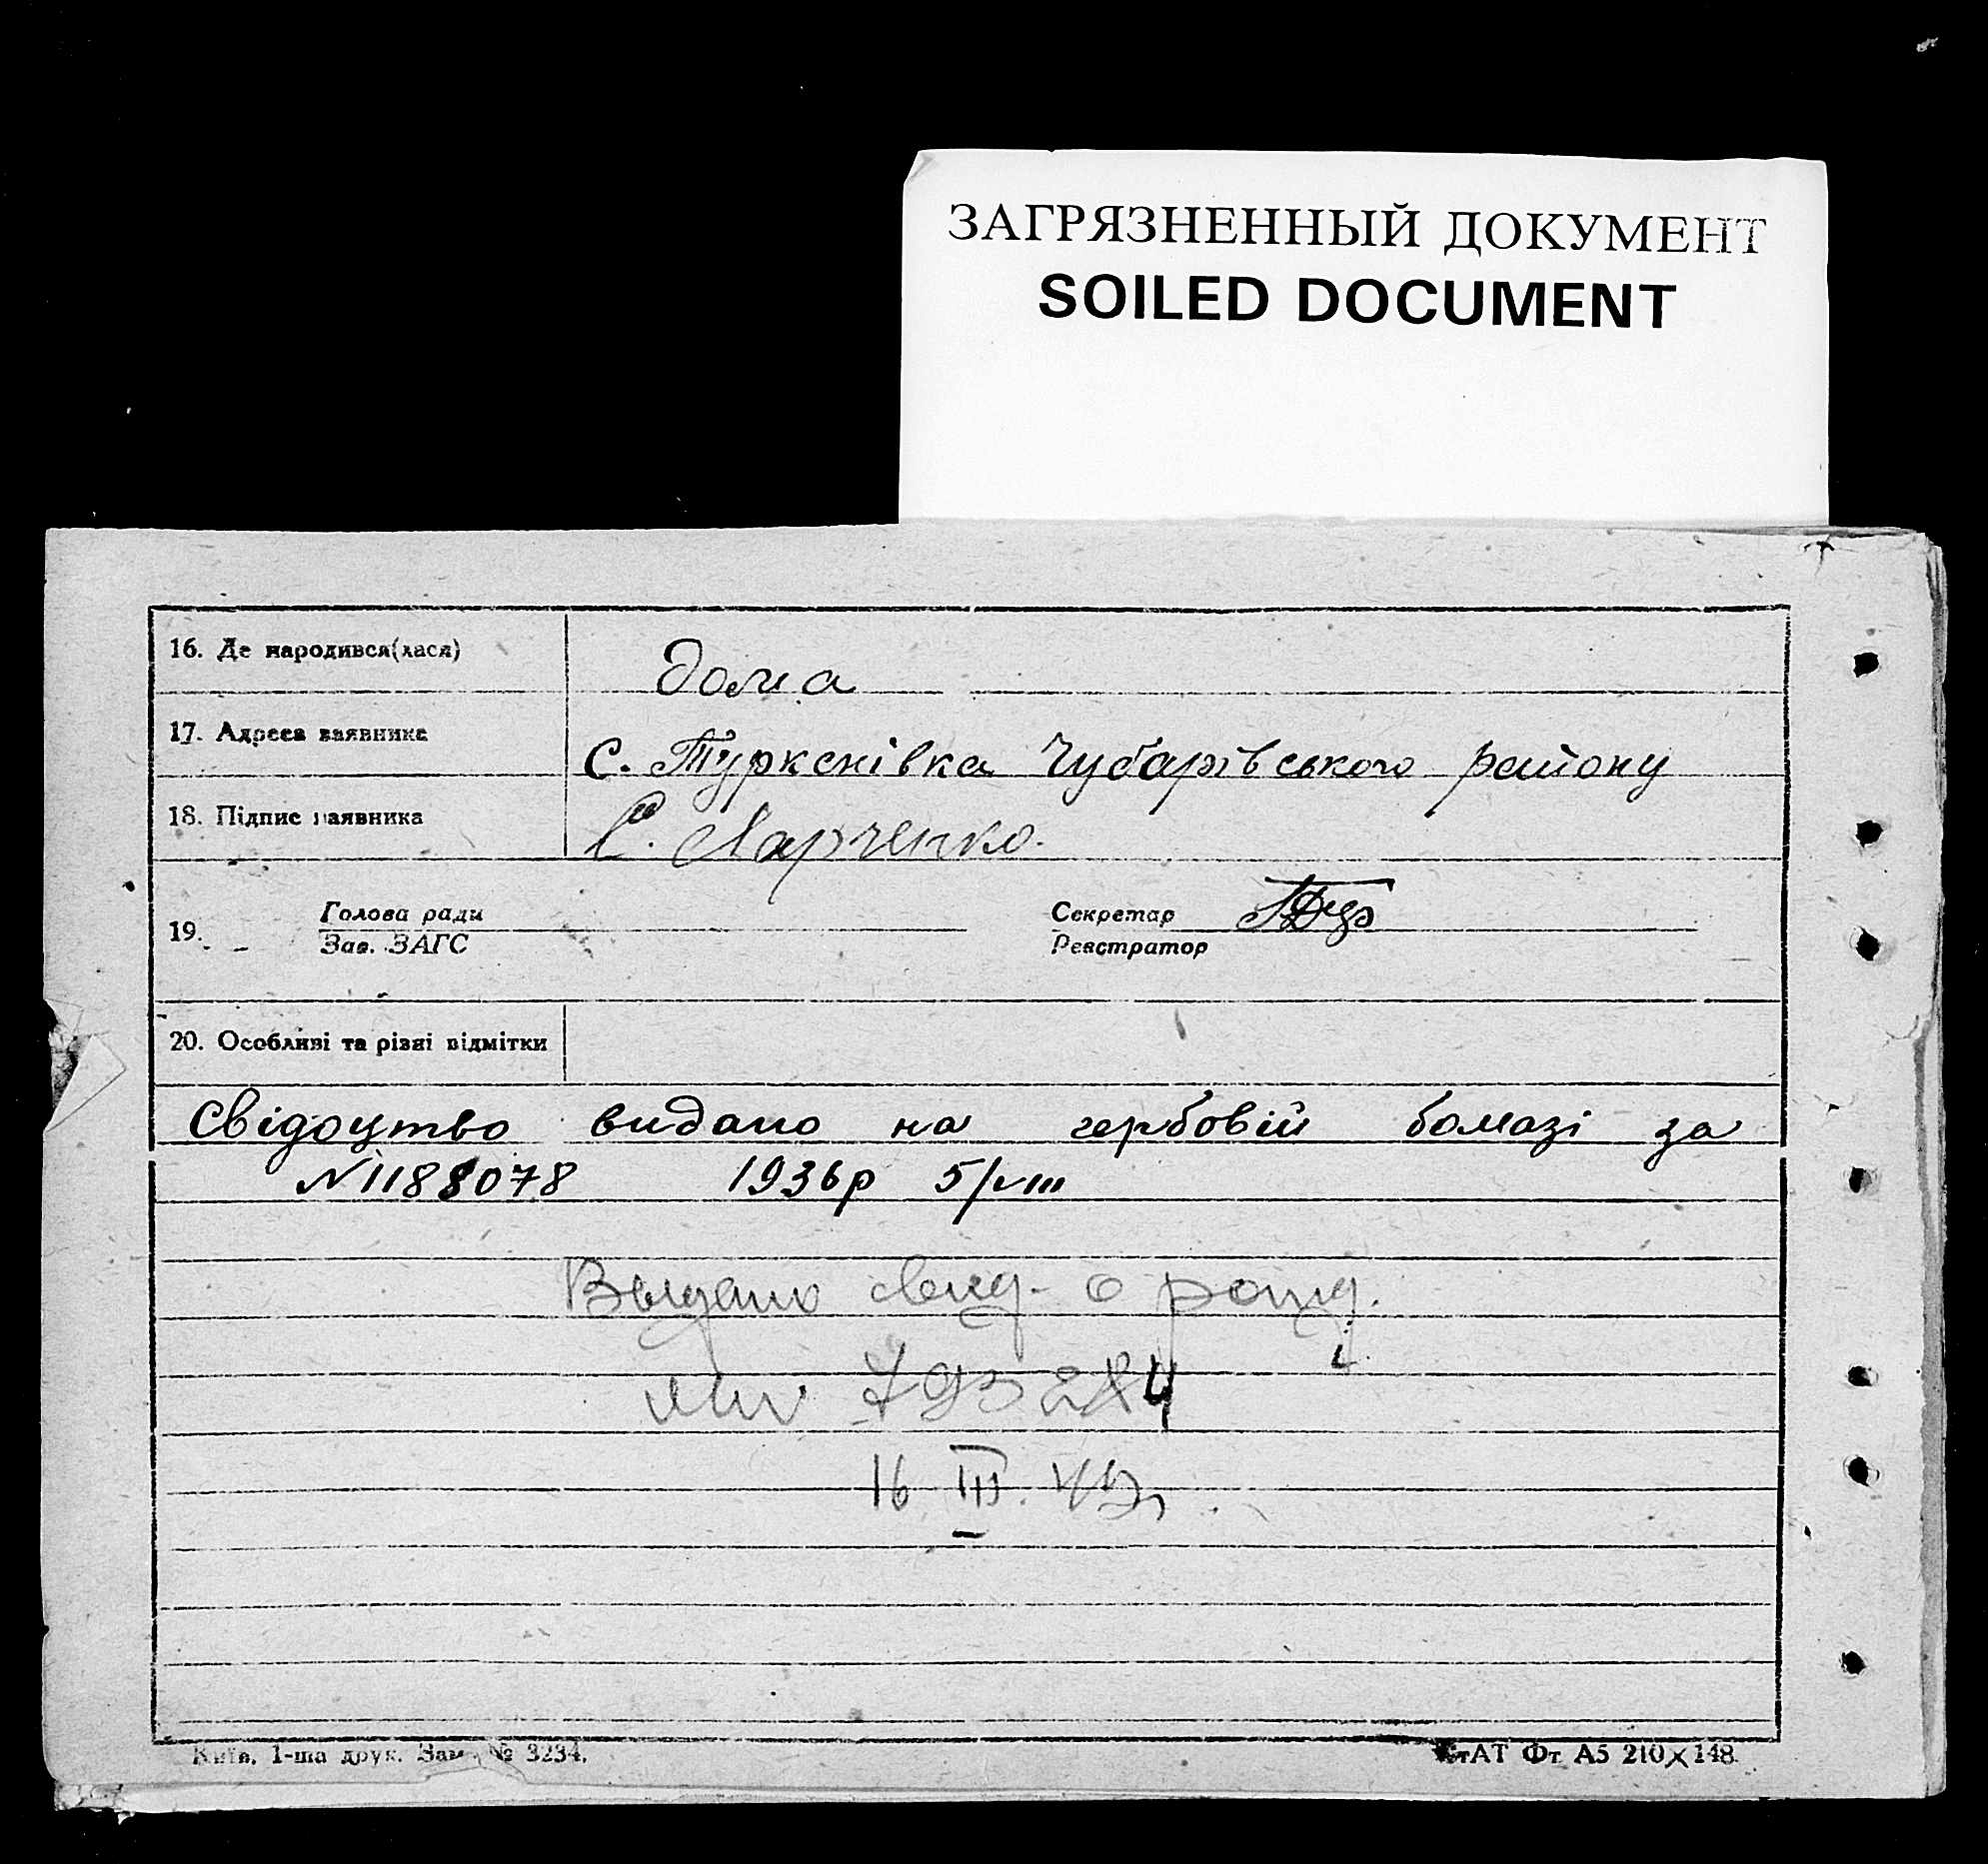 ЗАГРЯЗНЕННЫЙ ДОКУМЕНТ
SOILED DOCUMENT
16. Де народився(лася)
дома
17. Адреса заявника
с. Туркенівка Чубарівського району
18. Підпис заявника
С. Марченко.
19. Голова ради
Зав. ЗАГС
Секретар
Реєстратор
20. Особливі та різні відмітки
Свідоцтво видано на гербовій бомазі за
N 1188078 1936р 5/VIII
Выдано свид. о рожд.
16 III.
Київ, 1-ша друк. Зам. № 3234.
СтАТ Фт. А5 210×148.